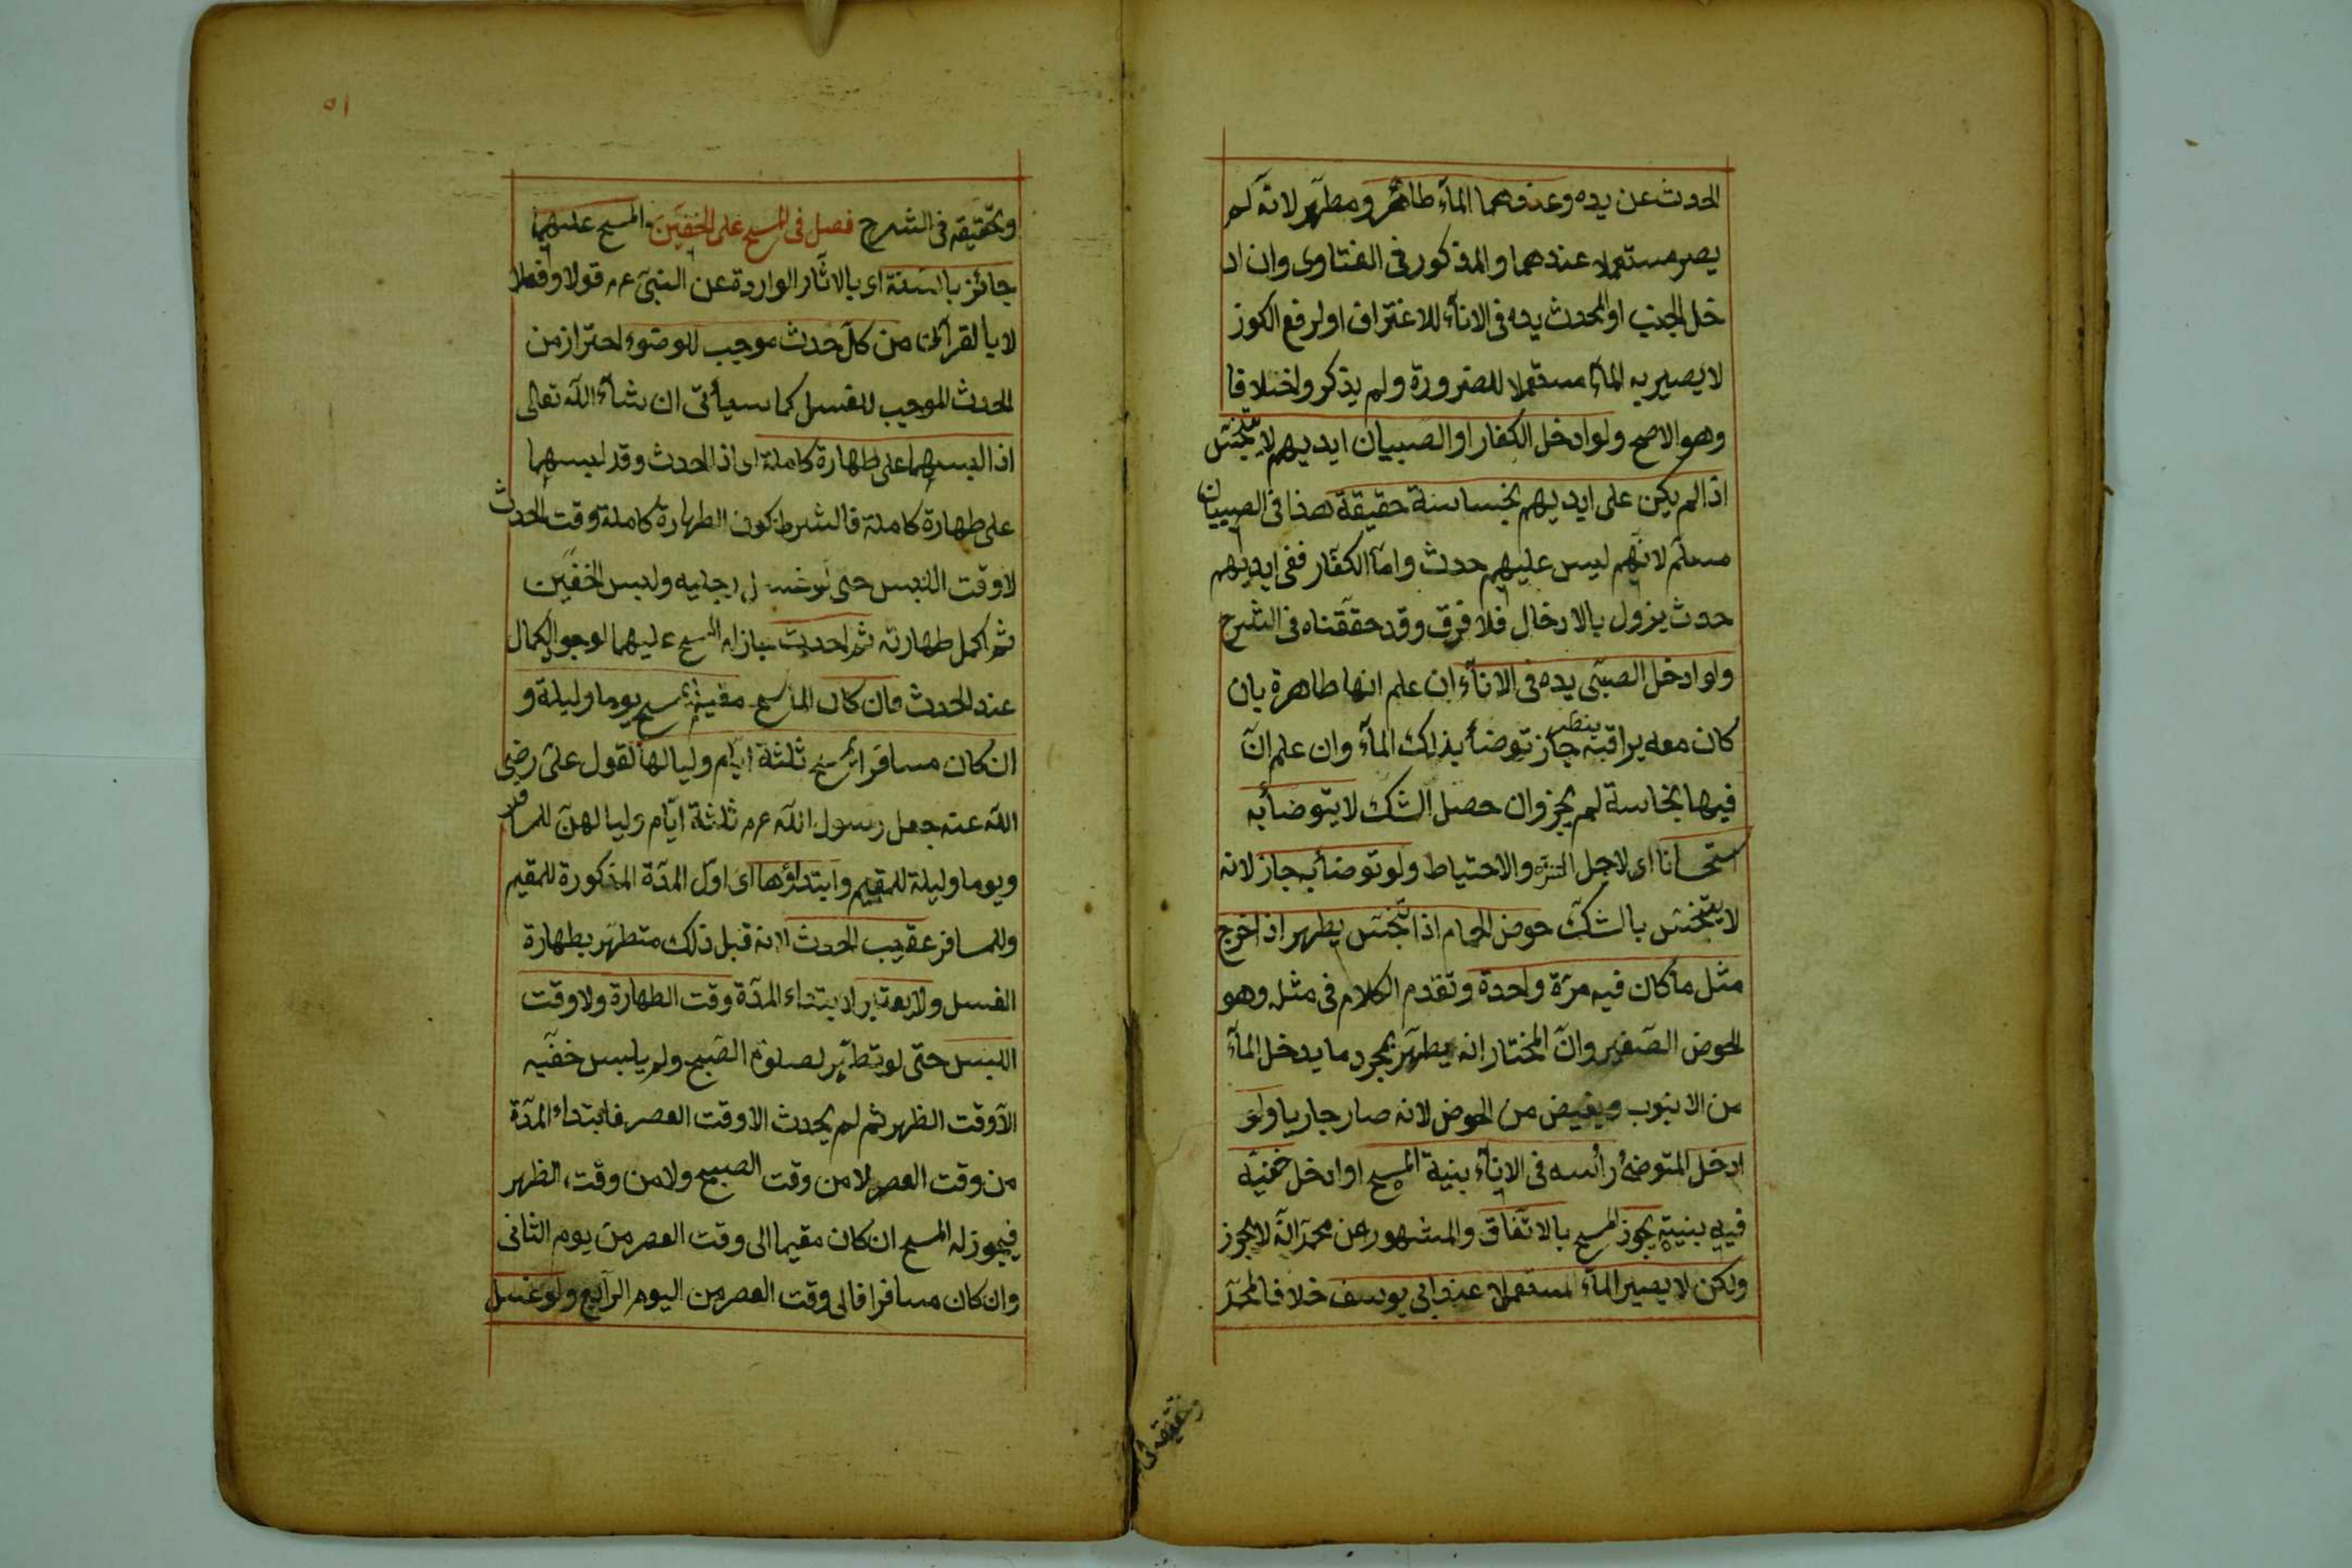 الحدث عن يده وعندهما المآء طاهر ومطهر لانه لم
يصر مستعملا عندهما والمذكور فى الفتاوى وان اد
خل الجنب او المحدث يده فى الانآء للاغتراف او لرفع الكوز
لا يصير به المآء مستعملا للضرورة ولم يذكروا خلافا
وهو الاصح ولو ادخل الكفار او الصبيان ايديهم لا يتنجس
اذا لم يكن على ايديهم نجاسة حقيقة هذا فى الصبيان
مسلم لانهم ليس عليهم حدث واما الكفار ففى ايديهم
حدث يزول بالادخال فلا فرق وقد حققناه فى الشرح
ولو ادخل الصبى يده فى الانآء ان علم انها طاهرة بان
كان معه يراقبه جاز توضأ بذلك المآء وان علم ان
فيها نجاسة لم يجز وان حصل الشك لا يتوضأ به
استحسانا اى لاجل التنزه والاحتياط ولو توضأ به جاز لانه
لا يتنجس بالشك حوض الحمام اذا تنجس يطهر اذا اخرج
مثل ما كان فيه مرة واحدة وتقدم الكلام فى مثله وهو
الحوض الصغير وان المختار انه يطهر بمجرد ما يدخل المآء
من الانبوب ويفيض من الحوض لانه صار جاريا ولو
ادخل المتوضئ رأسه فى الانآء بنية المسح او ادخل خفيه
فيه بنيته يجوز المسح بالاتفاق والمشهور عن محمد انه لا يجوز
ولكن لا يصير المآء مستعملا عند ابى يوسف خلافا لمحمد
وتحقيقه فى
٥١
وتحقيقه فى الشرح فصل فى المسح على الخفين والمسح عليهما
جائز بالسنة اى بالاثار الواردة عن النبى عم قولا وفعلا
لا بالقرآن من كل حدث موجب للوضوء احتراز من
الحدث الموجب للغسل كما سيأتى ان شآء الله تعالى
اذا لبسهما على طهارة كاملة اى اذا الحدث وقد لبسهما
على طهارة كاملة فالشرط كون الطهارة كاملة وقت الحدث
لا وقت اللبس حتى لو غسل رجليه ولبس الخفين
ثم اكمل طهارته ثم احدث جاز له المسح عليهما لوجود الكمال
عند الحدث فان كان الماسح مقيما يمسح يوما وليلة و
ان كان مسافرا يمسح ثلثة ايام ولياليها لقول على رضى
الله عنه جعل رسول الله عم ثلثة ايام ولياليهن للمسافر
ويوما وليلة للمقيم وابتداؤها اى اول المدة المذكورة للمقيم
وللمسافر عقيب الحدث لانه قبل ذلك متطهر بطهارة
الغسل ولا يعتبر ابتداء المدة وقت الطهارة ولا وقت
اللبس حتى لو تطهر لصلوة الصبح ولم يلبس خفيه
الا وقت الظهر ثم لم يحدث الا وقت العصر فابتداء المدة
من وقت العصر لا من وقت الصبح ولا من وقت الظهر
فيجوز له المسح ان كان مقيما الى وقت العصر من يوم الثانى
وان كان مسافرا فالى وقت العصر من اليوم الرابع ولو غسل